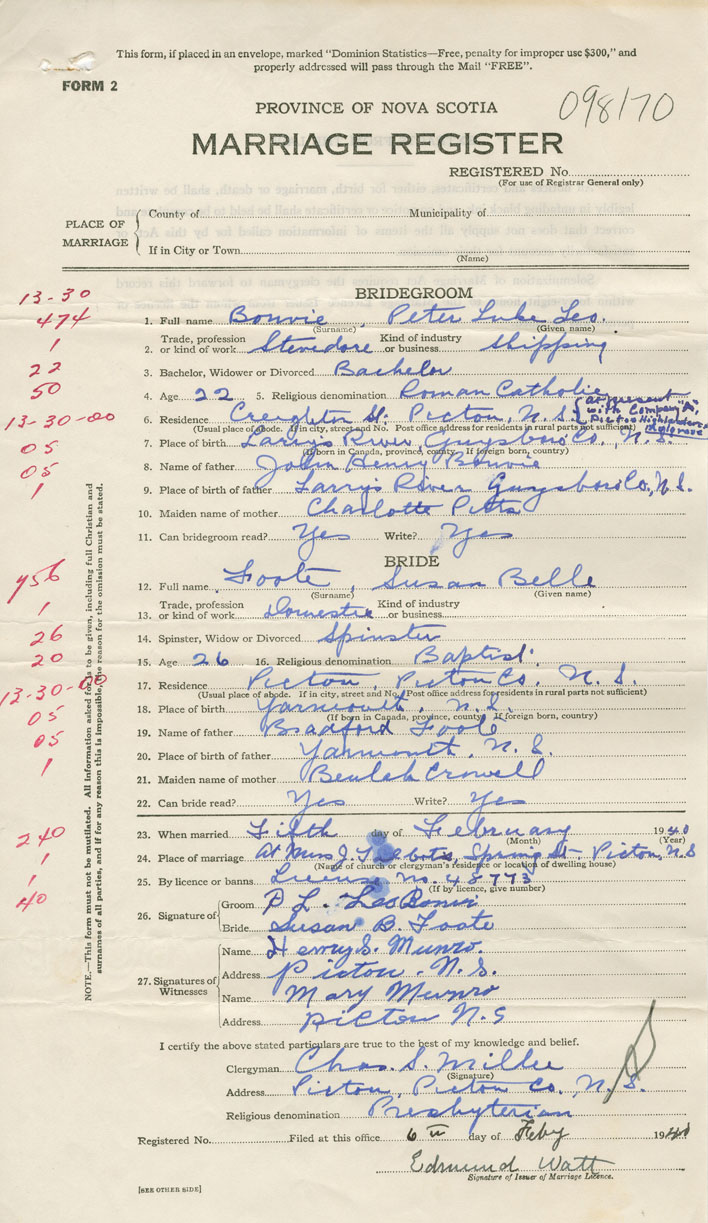 This form, if placed in an envelope, marked "Dominion Statistics—Free, penalty for improper use $300," and
properly addressed will pass through the Mail "FREE".
FORM 2
098170
PROVINCE OF NOVA SCOTIA
MARRIAGE REGISTER
REGISTERED No.
(For use of Registrar General only)
PLACE OF MARRIAGE
County of Municipality of
If in City or Town
(Name)
13-30
BRIDEGROOM
474
1. Full name Bouvie, Peter Luke Leo.
(Surname) (Given name)
1
Trade, profession Kind of industry
2. or kind of work Stevedore or business Shipping
22
3. Bachelor, Widower or Divorced Bachelor
50
4. Age 22 5. Religious denomination Roman Catholic
at present with Company "A", Pictou Highlanders
13-30-00
6. Residence Creighton St. Pictou, N.S.
(Usual place of abode. If in city, street and No. Post office address for residents in rural parts not sufficient)
05
7. Place of birth Larry's River, Guysboro Co., N.S.
(If born in Canada, province, county. If foreign born, country)
05
8. Name of father John Henry Bouvie
1
9. Place of birth of father Larry's River Guysboro Co., N.S.
10. Maiden name of mother Charlotte Pitts
11. Can bridegroom read? Yes Write? Yes
BRIDE
456
12. Full name Foote, Susan Belle
(Surname) (Given name)
1
Trade, profession Kind of industry
13. or kind of work Domestic or business
26
14. Spinster, Widow or Divorced Spinster
20
15. Age 26 16. Religious denomination Baptist
13-30-00
17. Residence Pictou, Pictou Co. N.S.
(Usual place of abode. If in city, street and No. Post office address for residents in rural parts not sufficient)
05
18. Place of birth Yarmouth, N.S.
(If born in Canada, province, county. If foreign born, country)
05
19. Name of father Bradford Foote
1
20. Place of birth of father Yarmouth, N.S.
21. Maiden name of mother Beulah Crowell
22. Can bride read? Yes Write? Yes
240
23. When married Fifth day of February 1940
(Month) (Year)
1
24. Place of marriage At Mrs J. Talbots, Spring St. Pictou, N.S
(Name of church or clergyman's residence or location of dwelling house)
1
25. By licence or banns License No. 48773
(If by licence, give number)
40
26. Signature of
Groom P L. Leo Bouvie
Bride Susan B. Foote
27. Signatures of Witnesses
Name Henry S. Munro.
Address Pictou. N.S.
Name Mary Munro
Address Pictou N.S
I certify the above stated particulars are true to the best of my knowledge and belief.
Clergyman Chas. S. Miller
(Signature)
Address Pictou, Pictou Co., N.S.
Religious denomination Presbyterian
Registered No. Filed at this office 6th day of Feby 1940
Edmund Watt
Signature of Issuer of Marriage Licence.
[SEE OTHER SIDE]
NOTE.—This form must not be mutilated. All information asked for is to be given, including full Christian and
surnames of all parties, and if for any reason this is impossible, the reason for the omission must be stated.